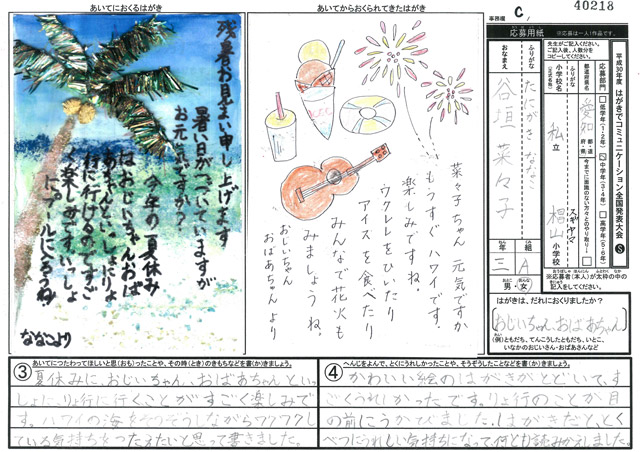 あいてにおくるはがき
残暑お見まい申し上げます
暑い日がつづいていますが
お元気ですか?
今年の夏休み
はおじいちゃんおば
あちゃんといっしょにりょ
行に行けるのですご
く楽しみです。いっしょ
にプールに入ろうね。
ななこより
あいてからおくられてきたはがき
菜々子ちゃん 元気ですか
もうすぐハワイです。
楽しみですね。
ウクレレをひいたり
アイスを食べたり
みんなで花火も
みましょうね。
おじいちゃん
おばあちゃんより
事務欄 C
40218
応募用紙
※応募は一人1作品です。
平成30年度 はがきでコミュニケーション全国発表大会 S
先生がご記入ください。
ご記入後、人数分を
コピーしてください。
応募部門 低学年(1・2年) 中学年(3・4年) 高学年(5・6年)
都道府県名 愛知 都道府県
今までに面識のない方々とのやり取り
ふりがな スギヤマ
小学校名 私立 椙山 小学校
(正式名称)
ふりがな たにがき ななこ
おなまえ 谷垣 菜々子
年 三 組 A
男・女
※応募者(本人)が太枠の中の
記入をしてください。
はがきは、だれにおくりましたか?
おじいちゃん、おばあちゃん
(例)ともだち、てんこうしたともだち、いとこ、
いなかのおじいさん・おばあさんなど
③ あいてにつたわってほしいと思(おも)ったことや、その時(とき)のきもちなどを書(か)きましょう。
夏休みに、おじいちゃん、おばあちゃんといっ
しょに、りょ行に行くことがすごく楽しみで
す。ハワイの海をそうぞうしながらワクワクし
ている気持ちをつたえたいと思って書きました。
④ へんじをよんで、とくにうれしかったことや、そうぞうしたことなどを書(か)きましょう。
かわいい絵のはがきがとどいて、す
ごくうれしかったです。りょ行のことが目
の前にうかびました。はがきだと、とく
べつにうれしい気持ちになって、何ども読みかえしました。